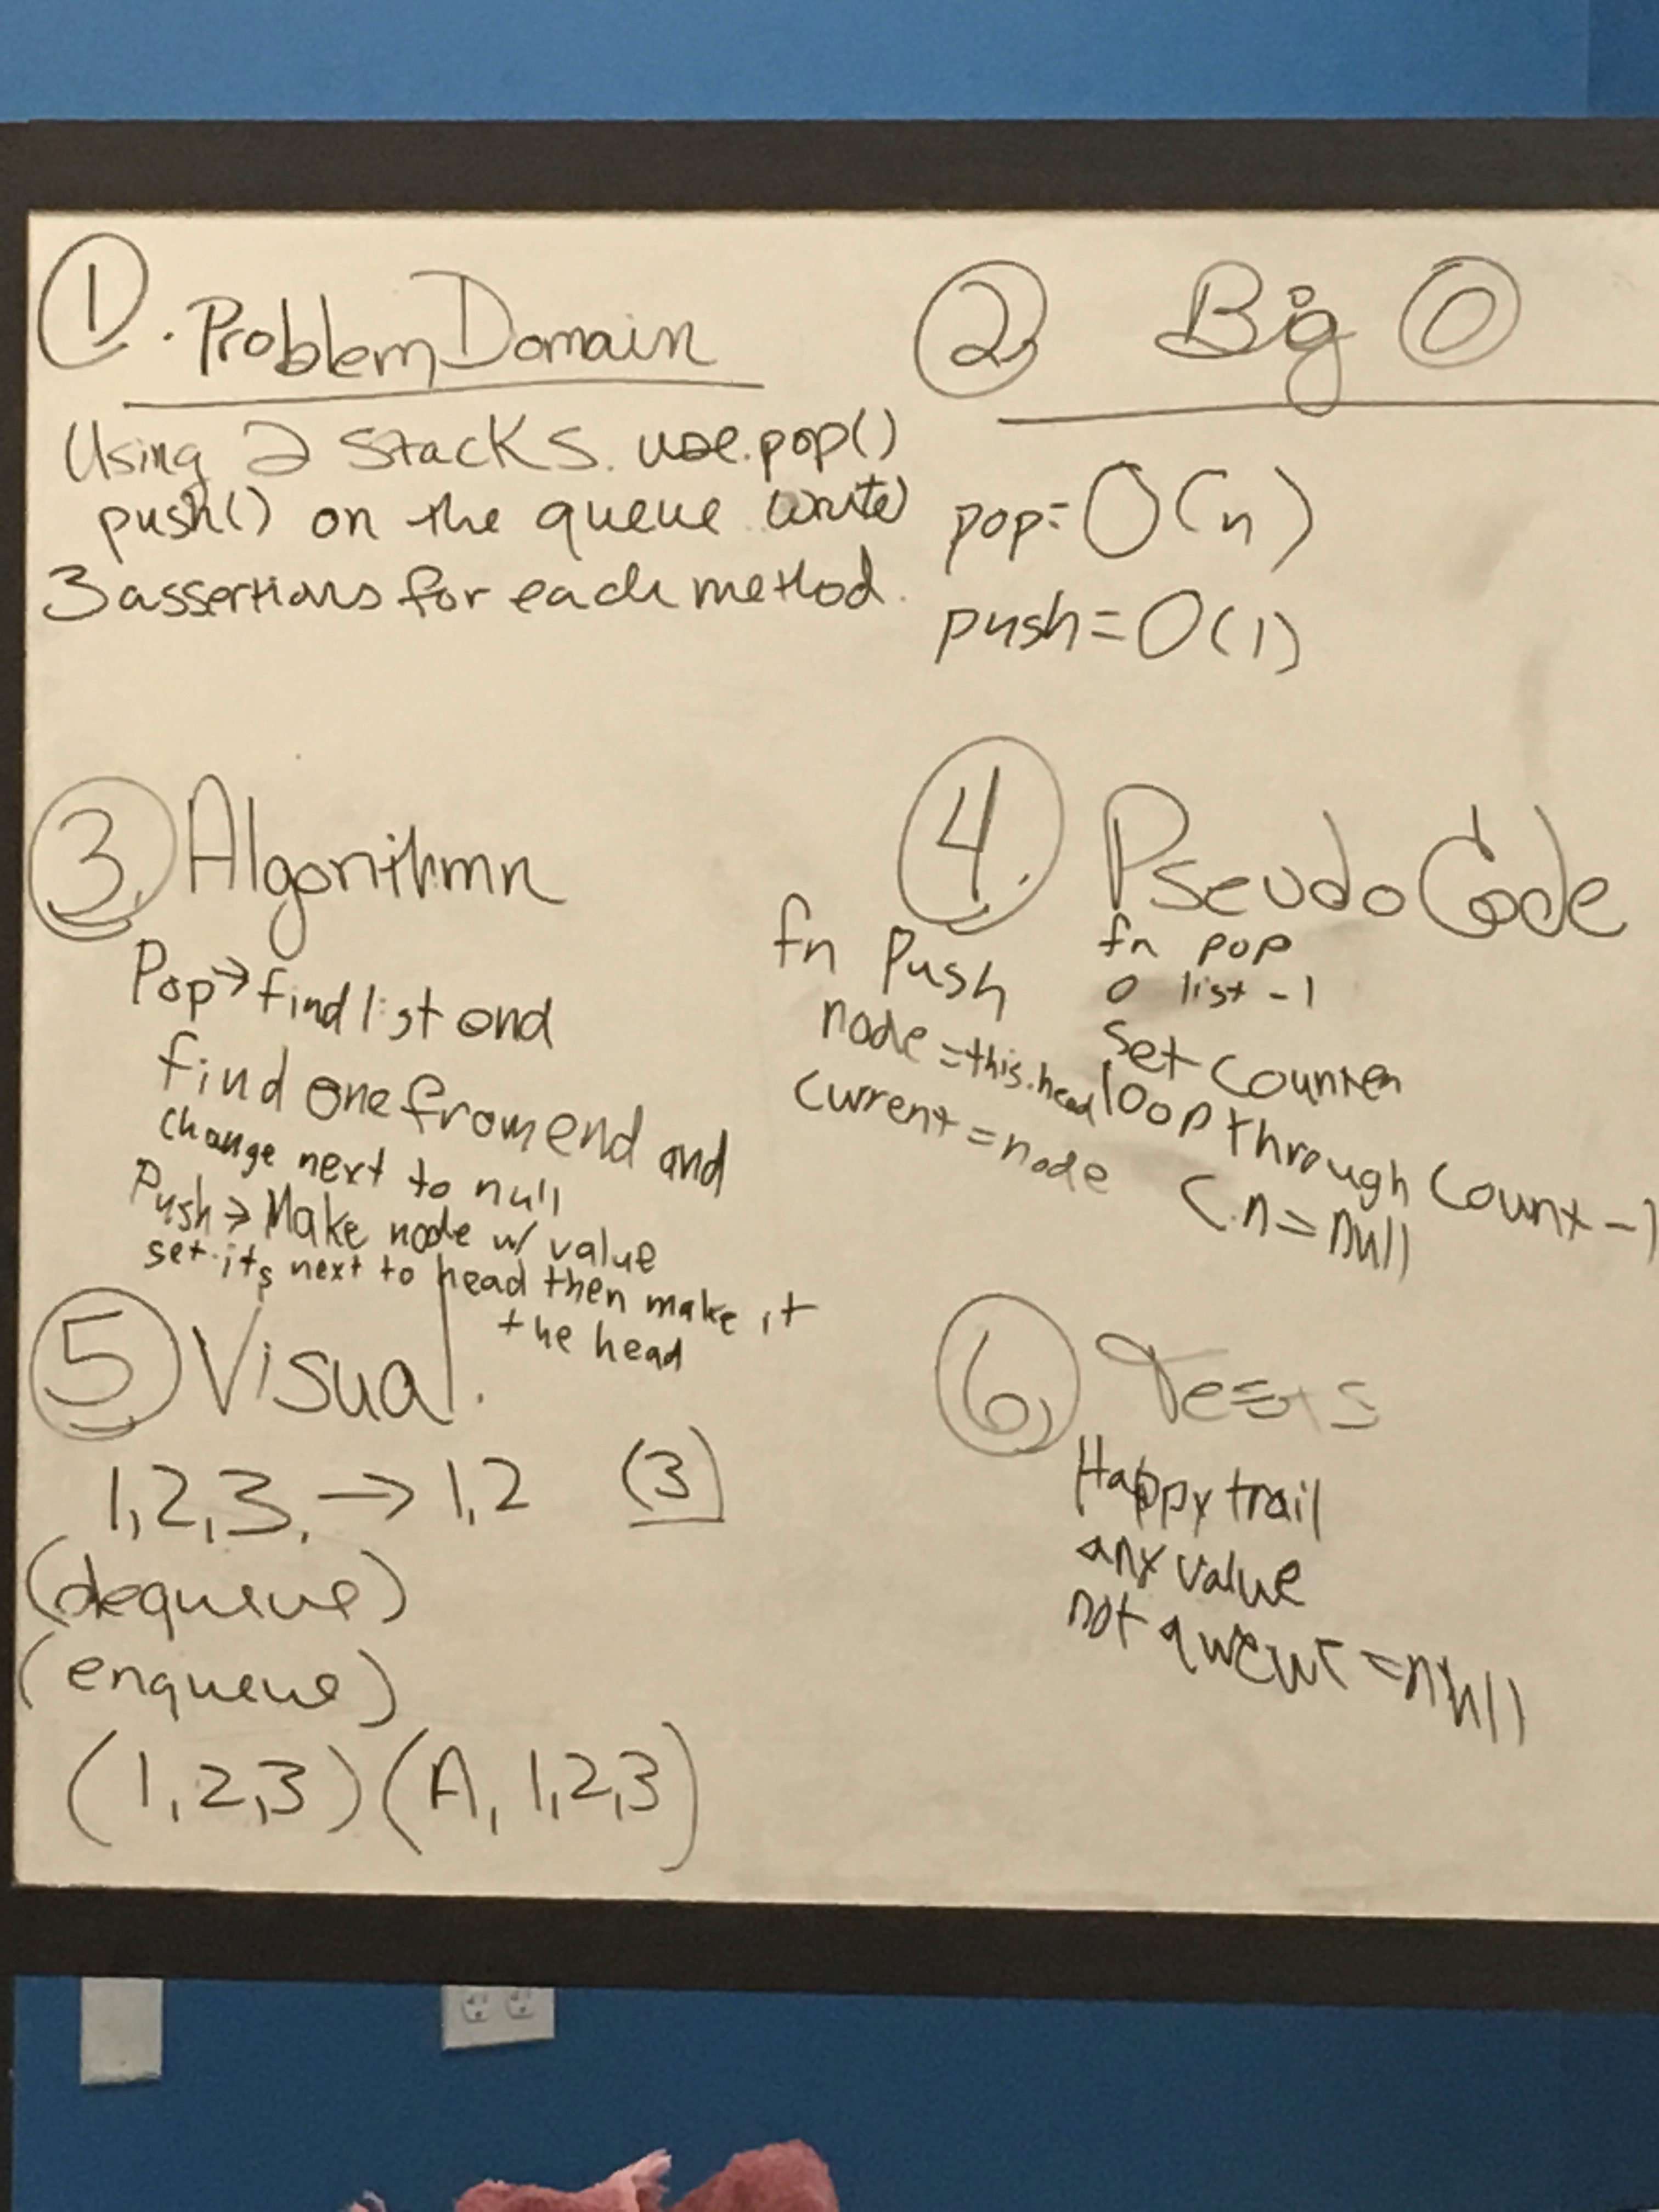 1. Problem Domain
Using 2 stacks. use .pop()
push() on the queue write
3 assertions for each method.
2. Big O
pop = O(n)
push = O(1)
3. Algorithmn
Pop → find list end
find one from end and
change next to null
Push → Make node w/ value
set its next to head then make it
the head
4. Pseudo Code
fn Push
node = this.head
current = node
fn pop
o list - 1
set counter
loop through count - 1
C.n = null
5. Visual.
1,2,3. → 1,2 (3)
(dequeue)
(enqueue)
(1,2,3) (A, 1,2,3)
6. Tests
Happy trail
any value
not = null